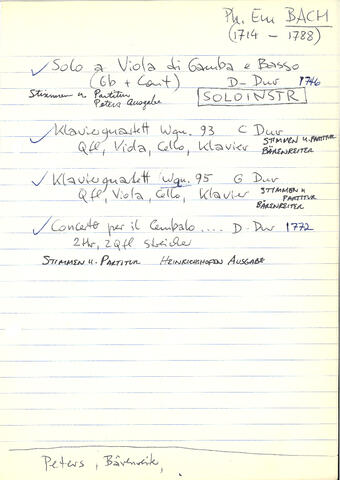 Ph. Em BACH
(1714 – 1788)
Solo a Viola di Gamba e Basso
(Gb + Cont) D-Dur 1746
Stimmen u Partitur
Peters Ausgabe
SOLOINSTR
Klavierquartett Wqn. 93 C Dur
Qfl, Viola, Cello, Klavier STIMMEN u. PARTITUR
BÄRENREITER
Klavierquartett Wqn. 95 G Dur
Qfl, Viola, Cello, Klavier STIMMEN u
PARTITUR
BÄRENREITER
Concerto per il Cembalo .... D-Dur 1772
2Hr, 2Qfl Streicher
STIMMEN u. PARTITUR HEINRICHSHOFEN AUSGABE
Peters, Bärenreit,